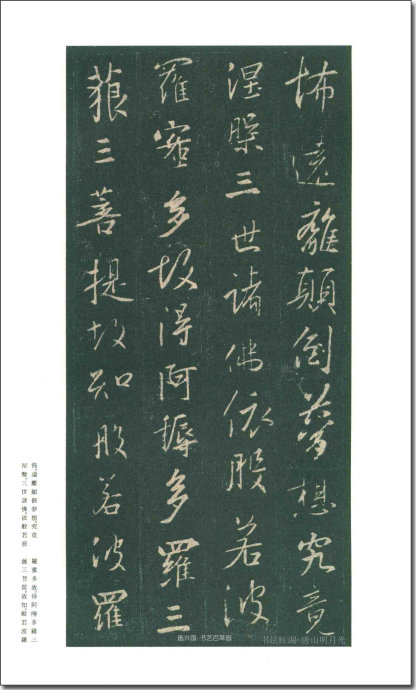 怖遠離顛倒夢想究竟
涅槃三世諸佛依般若波
羅蜜多故得阿耨多羅三
藐三菩提故知般若波羅
怖遠離顛倒夢想究竟
涅槃三世諸佛依般若波
羅蜜多故得阿耨多羅三
藐三菩提故知般若波羅
书法江湖-唐山明月光